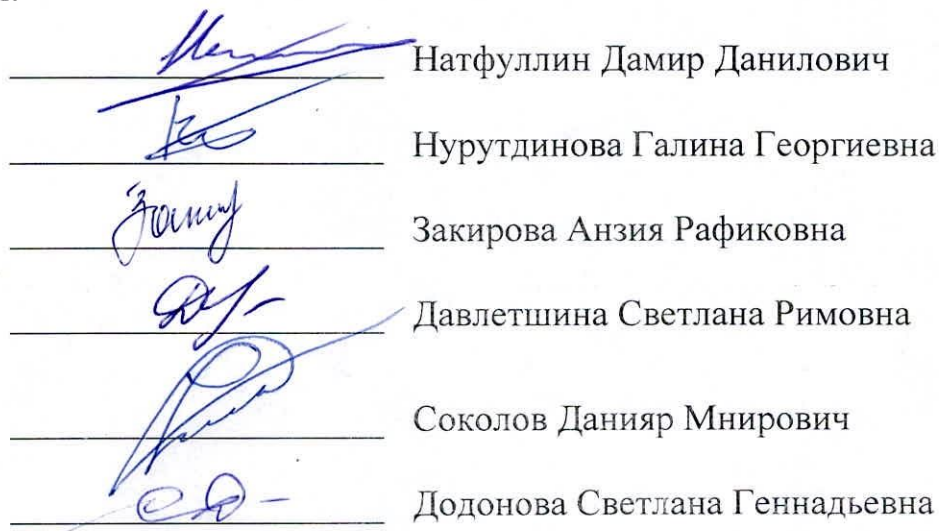 Натфуллин Дамир Данилович
Нурутдинова Галина Георгиевна
Закирова Анзия Рафиковна
Давлетшина Светлана Римовна
Соколов Данияр Мнирович
Додонова Светлана Геннадьевна